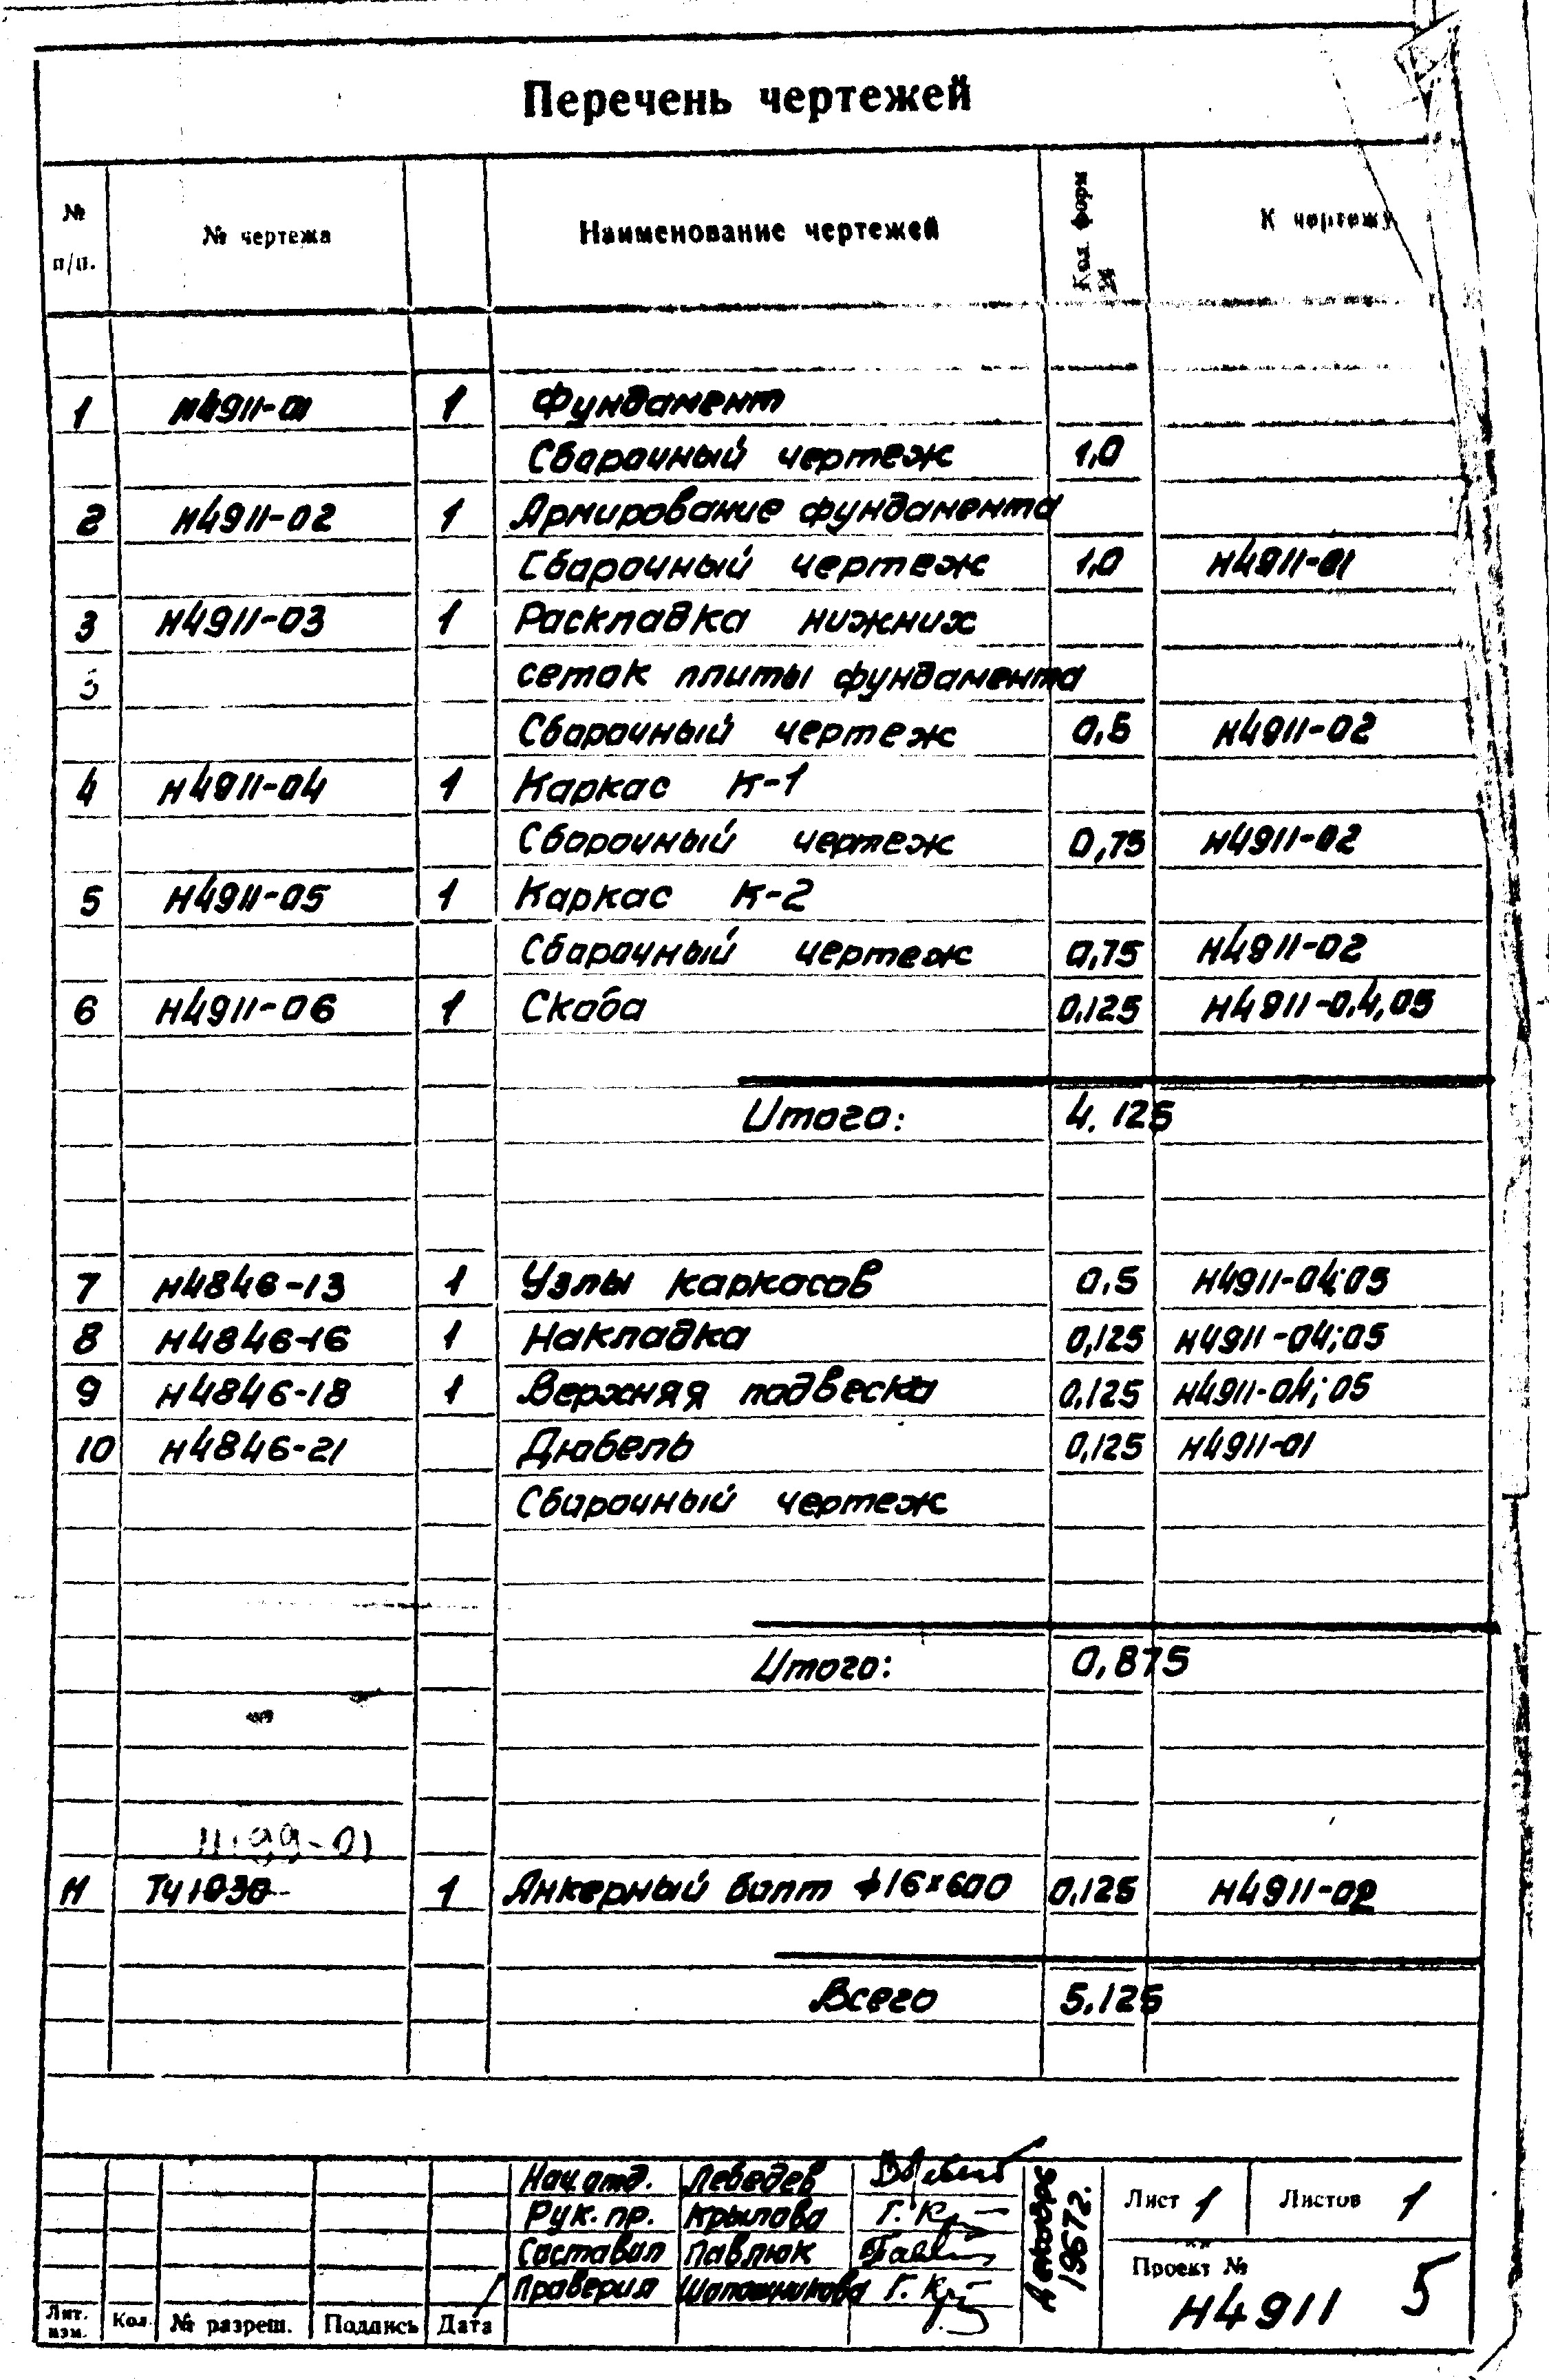 Перечень чертежей
№ п/п. № чертежа Наименование чертежей Кол. форм К чертежу
1 Н4911-01 1 Фундамент
Сборочный чертеж 1,0
2 Н4911-02 1 Армирование фундамента
Сборочный чертеж 1,0 Н4911-01
3 Н4911-03 1 Раскладка нижних
сеток плиты фундамента
Сборочный чертеж 0,5 Н4911-02
4 Н4911-04 1 Каркас К-1
Сборочный чертеж 0,75 Н4911-02
5 Н4911-05 1 Каркас К-2
Сборочный чертеж 0,75 Н4911-02
6 Н4911-06 1 Скоба 0,125 Н4911-0.4,05
Итого: 4.125
7 Н4846-13 1 Узлы каркасов 0,5 Н4911-04;05
8 Н4846-16 1 Накладка 0,125 Н4911-04;05
9 Н4846-18 1 Верхняя подвеска 0,125 Н4911-04;05
10 Н4846-21 Дюбель 0,125 Н4911-01
Сборочный чертеж
Итого: 0,875
11 ТЧ1030 1 Анкерный болт ф16×600 0,125 Н4911-02
Всего 5,125
Нач. отд. Лебедев
Рук. пр. Крылова
Составил Павлюк
Проверил Шапошникова
Лит. изм. Кол. № разреш. Подпись Дата
1967г.
Лист 1 Листов 1
Проект №
Н4911 5